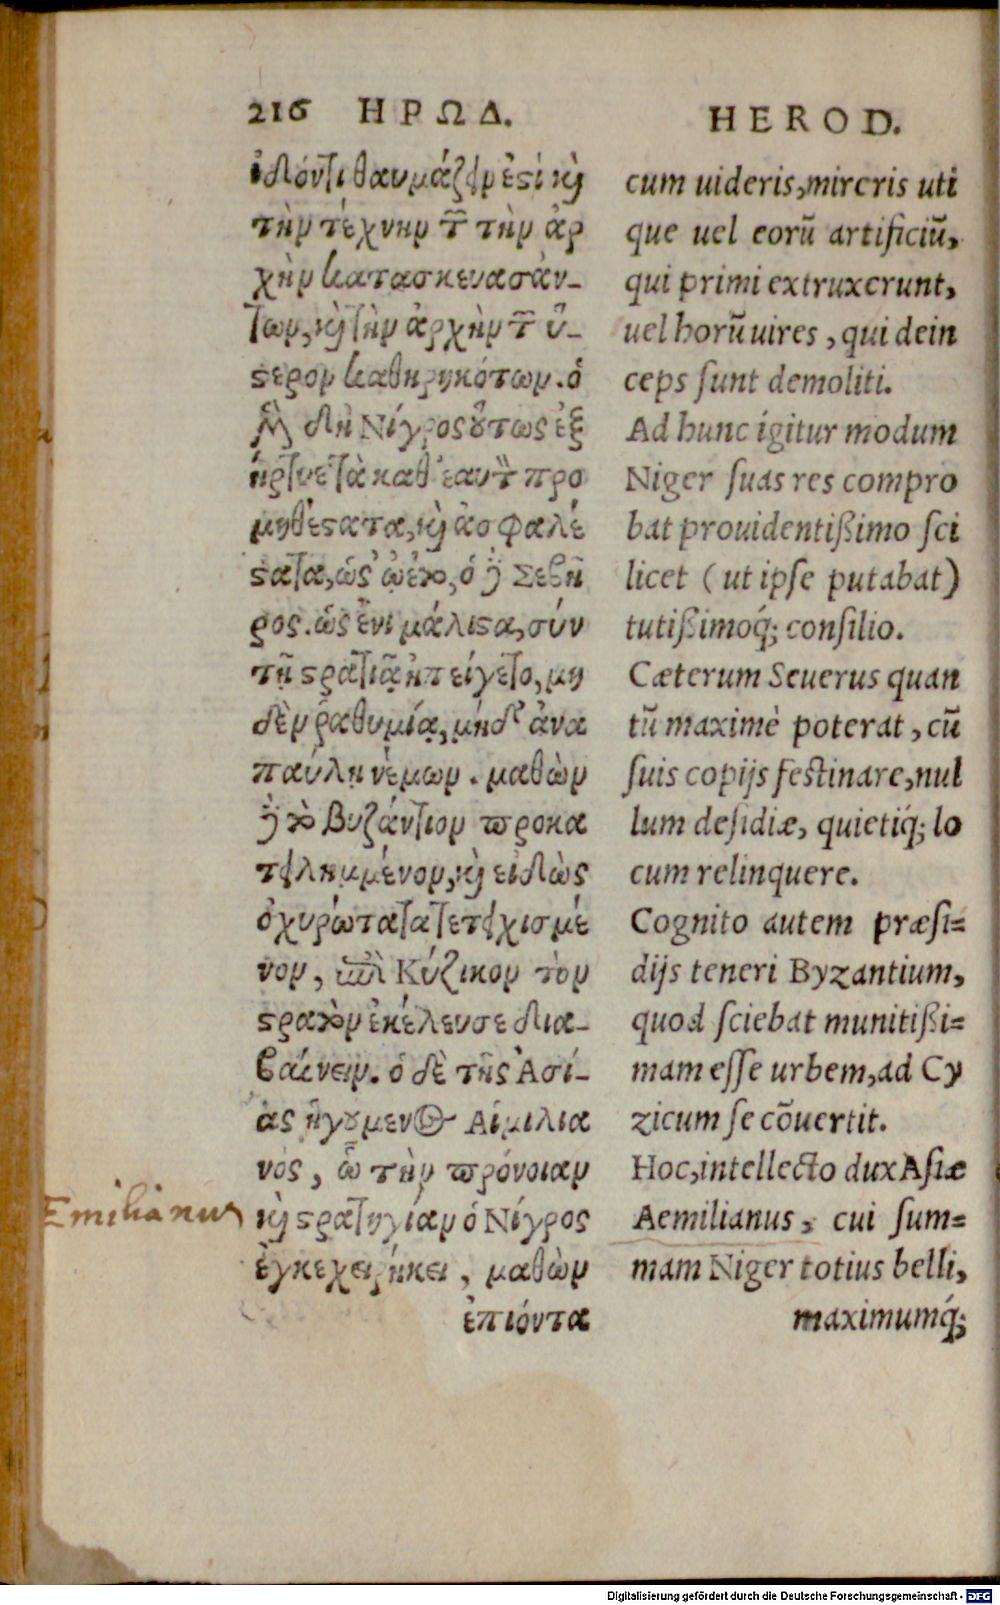 216 ΗΡΩΔ.
ἰδόντι θαυμάζειν ἐστὶ καὶ
τὴν τέχνην τῶν τὴν ἀρ
χὴν κατασκευασάν-
των, καὶ τὴν ἀρχὴν τῶν ὕ-
στερον καθῃρηκότων. ὁ
μὲν δὴ Νίγρος οὕτως ἐξ
ήρτυε τὰ καθ' ἑαυτὸν προ
μηθέστατα, καὶ ἀσφαλέ
στατα, ὡς ᾤετο, ὁ δὲ Σεβῆ
ρος. ὡς ἔνι μάλιστα, σύν
τῇ στρατιᾷ ἠπείγετο, μη
δὲν ῥαθυμίᾳ, μηδ' ἀνα
παύλῃ νέμων. μαθὼν
δὲ τὸ Βυζάντιον προκα
τειλημμένον, καὶ εἰδὼς
ὀχυρώτατα τετειχισμέ
νον, ἐπὶ Κύζικον τὸν
στρατὸν ἐκέλευσε δια-
βαίνειν. ὁ δὲ τῆς Ἀσί-
ας ἡγούμενος Αἰμιλια
νός, ᾧ τὴν πρόνοιαν
καὶ στρατηγίαν ὁ Νίγρος
ἐγκεχειρήκει, μαθὼν
ἐπιόντα
Emilianus
HEROD.
cum uideris, mireris uti
que uel eorū artificiū,
qui primi extruxerunt,
uel horū uires, qui dein
ceps sunt demoliti.
Ad hunc igitur modum
Niger suas res compro
bat prouidentißimo sci
licet (ut ipse putabat)
tutißimoq́; consilio.
Cæterum Seuerus quan
tū maximè poterat, cū
suis copijs festinare, nul
lum desidiæ, quietiq́; lo
cum relinquere.
Cognito autem præsi=
dijs teneri Byzantium,
quod sciebat munitißi=
mam esse urbem, ad Cy
zicum se cōuertit.
Hoc, intellecto dux Asiæ
Aemilianus, cui sum=
mam Niger totius belli,
maximumq́;
Digitalisierung gefördert durch die Deutsche Forschungsgemeinschaft - DFG